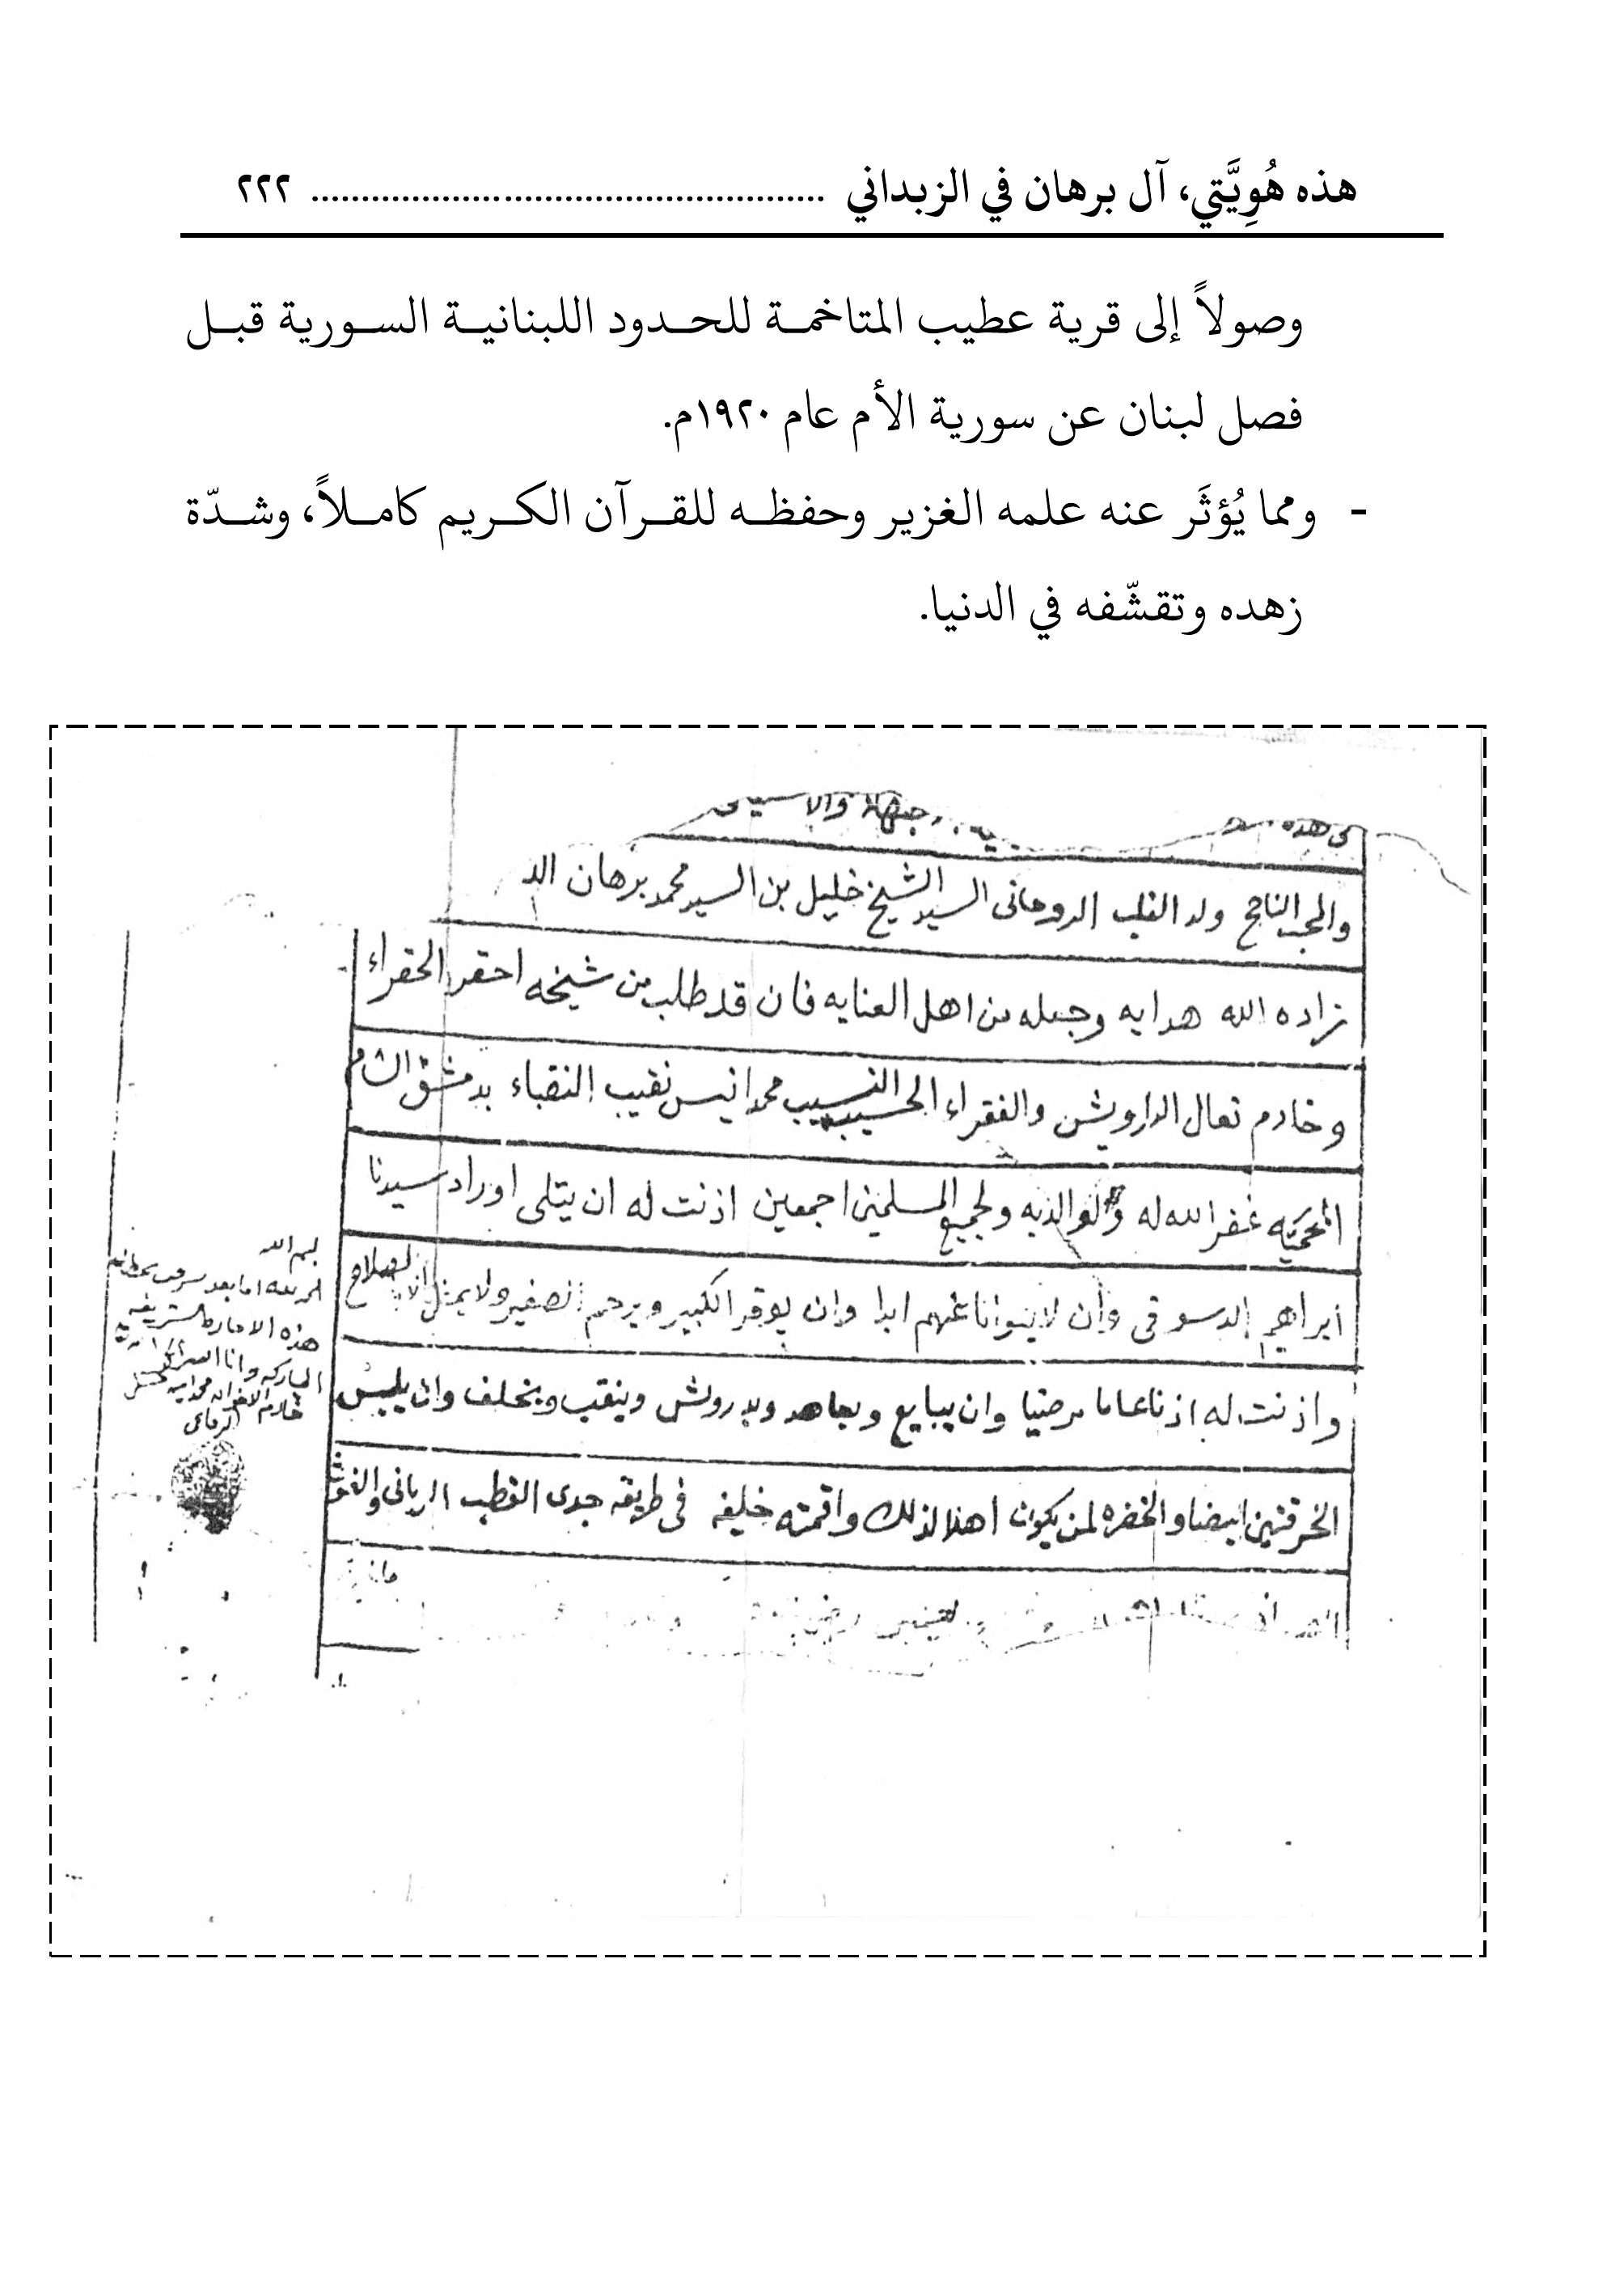 هذه هُوِيَّتي، آل برهان في الزبداني .................................................. ٢٢٢
وصولاً إلى قرية عطيب المتاخمة للحدود اللبنانية السورية قبل
فصل لبنان عن سورية الأم عام ١٩٢٠م.
- ومما يُؤثَر عنه علمه الغزير وحفظه للقرآن الكريم كاملاً، وشدّة
زهده وتقشّفه في الدنيا.
والمحب الناجح ولد القلب الروحانى السيد الشيخ خليل بن السيد محمد برهان الد
زاده الله هدايه وجعله من اهل العنايه فان قد طلب من شيخه احقر الحقراء
وخادم نعال الدراويش والفقراء الحسيب النسيب محمد انيس نقيب النقباء بدمشق الشام
المحميّه غفر الله له ولوالديه ولجميع المسلمين اجمعين اذنت له ان يتلى اوراد سيدنا
ابراهيم الدسوقى وان لا يتوانا عنهم ابدا وان يوقر الكبير ويرحم الصغير ولا يمثل الا الصلاح
واذنت له اذنا عاما مرضيا وان يبايع ويعاهد ويدروش وينقب ويخلف وان يلبس
الخرقتين ايضا والخضره لمن يكون اهلا لذلك واقمته خليفه فى طريقه جدى القطب الربانى والغوث
بسم الله
هذه الاجازه الشريفه
المباركه وانا
خادم